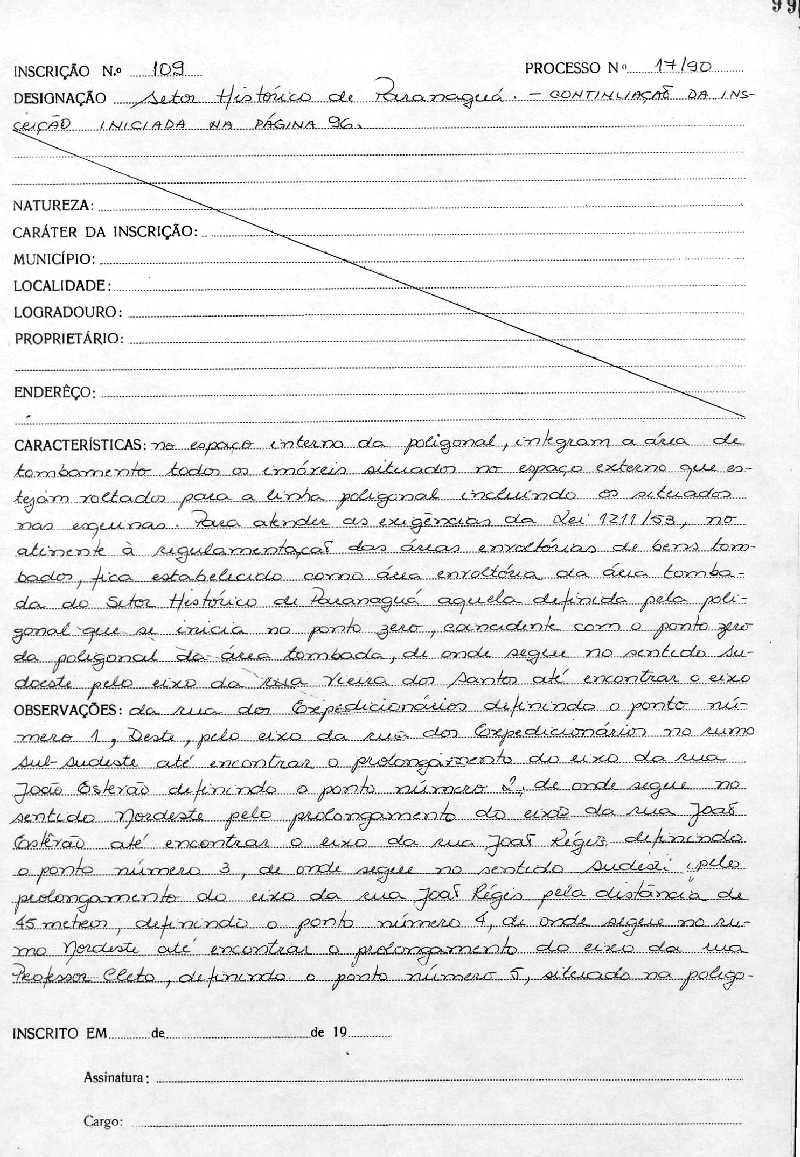 99
INSCRIÇÃO N.º 109 PROCESSO Nº 17/90
DESIGNAÇÃO Setor Histórico de Paranaguá. - CONTINUAÇÃO DA INS-
CRIÇÃO INICIADA NA PÁGINA 96.
NATUREZA:
CARÁTER DA INSCRIÇÃO:
MUNICÍPIO:
LOCALIDADE:
LOGRADOURO:
PROPRIETÁRIO:
ENDERÊÇO:
CARACTERÍSTICAS: no espaço interno da poligonal, integram a área de
tombamento todos os imóveis situados no espaço externo que es-
tejam voltados para a linha poligonal incluindo os situados
nas esquinas. Para atender as exigências da Lei 1211/53, no
atinente à regulamentação das áreas envoltórias de bens tom-
bados, fica estabelecido como área envoltória da área tomba-
da do Setor Histórico de Paranaguá aquela definida pela poli-
gonal que se inicia no ponto zero, coincidente com o ponto zero
da poligonal da área tombada, de onde segue no sentido su-
doeste pelo eixo da rua Vieira dos Santos até encontrar o eixo
OBSERVAÇÕES: da rua dos Expedicionários definindo o ponto nú-
mero 1, Deste, pelo eixo da rua dos Expedicionários no rumo
sul-sudeste até encontrar o prolongamento do eixo da rua
João Estevão definindo o ponto número 2, de onde segue no
sentido Nordeste pelo prolongamento do eixo da rua João
Estevão até encontrar o eixo da rua João Régis definindo
o ponto número 3, de onde segue no sentido sudeste pelo
prolongamento do eixo da rua João Régis pela distância de
45 metros, definindo o ponto número 4, de onde segue no ru-
mo Nordeste até encontrar o prolongamento do eixo da rua
Professor Cleto, definindo o ponto número 5, situado na poligo-
INSCRITO EM de de 19
Assinatura:
Cargo: